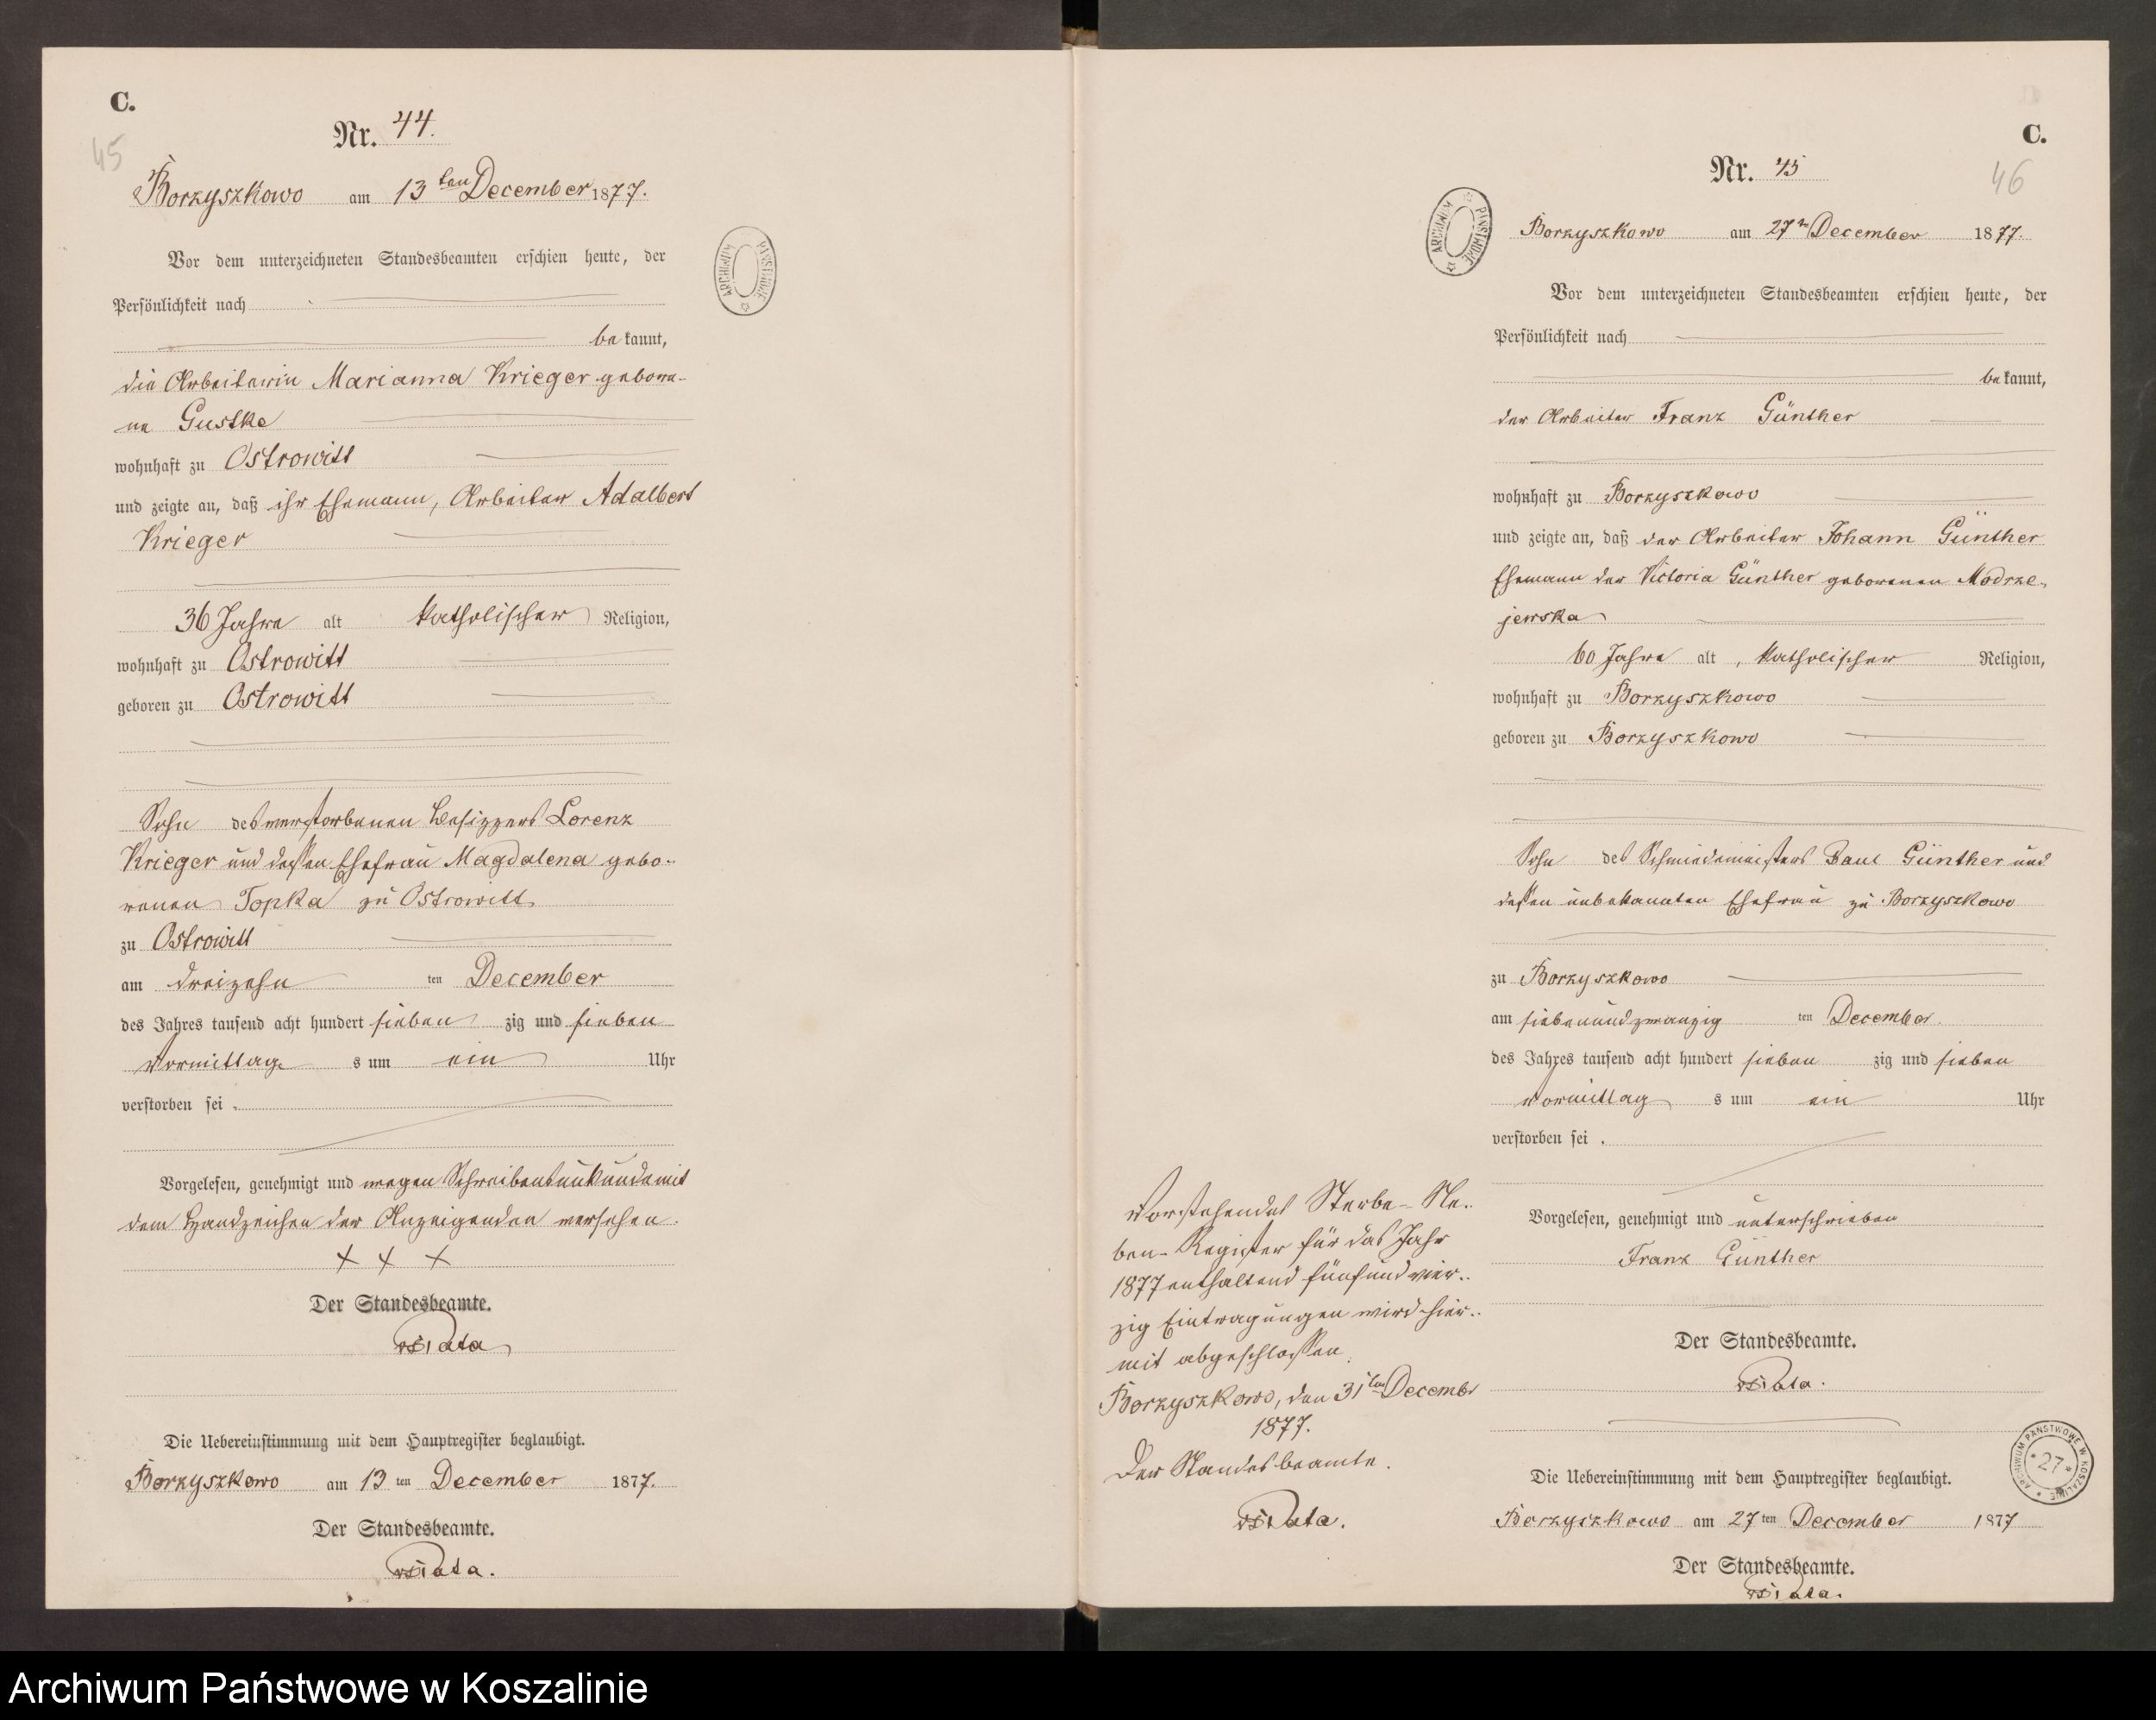 C.
45
Nr. 44.
Borzyszkowo am 13ten December 1877.
Vor dem unterzeichneten Standesbeamten erschien heute, der
Persönlichkeit nach
be kannt,
die Arbeiterin Marianna Krieger gebore-
ne Gustke
wohnhaft zu Ostrowitt
und zeigte an, daß ihr Ehemann, Arbeiter Adalbert
Krieger
36 Jahre alt katholischer Religion,
wohnhaft zu Ostrowitt
geboren zu Ostrowitt
Sohn des verstorbenen Besitzers Lorenz
Krieger und dessen Ehefrau Magdalena gebo-
renen Topka zu Ostrowitt
zu Ostrowitt
am dreizehn ten December
des Jahres tausend acht hundert sieben zig und sieben
Vormittag s um ein Uhr
verstorben sei.
Vorgelesen, genehmigt und wegen Schreibensunkunde mit
dem Handzeichen der Anzeigenden versehen.
X X X
Der Standesbeamte.
Die Uebereinstimmung mit dem Hauptregister beglaubigt.
Borzyszkowo am 13 ten December 1877.
Der Standesbeamte.
C.
46
Nr. 45
ARCHIWUM PAŃSTWOWE
Borzyszkowo am 27n December 1877.
Vor dem unterzeichneten Standesbeamten erschien heute, der
Persönlichkeit nach
be kannt,
der Arbeiter Franz Günther
wohnhaft zu Borzyszkowo
und zeigte an, daß der Arbeiter Johann Günther
Ehemann der Victoria Günther geborenen Modrze-
jewska
60 Jahre alt, katholischer Religion,
wohnhaft zu Borzyszkowo
geboren zu Borzyszkowo
Sohn des Schmiedemeisters Paul Günther und
dessen unbekannten Ehefrau zu Borzyszkowo
zu Borzyszkowo
am siebenundzwanzig ten December
des Jahres tausend acht hundert sieben zig und sieben
Vormittag s um ein Uhr
verstorben sei.
Vorgelesen, genehmigt und unterschrieben
Franz Günther
Der Standesbeamte.
Die Uebereinstimmung mit dem Hauptregister beglaubigt.
Borzyszkowo am 27 ten December 1877
Der Standesbeamte.
Vorstehendes Sterbe-Ne-
ben-Register für das Jahr
1877 enthaltend fünfundvier-
zig Eintragungen wird hier-
mit abgeschlossen.
Borzyszkowo, den 31ten Decembr
1877.
Der Standesbeamte.
ARCHIWUM PAŃSTWOWE W KOSZALINIE
* 27 *
Archiwum Państwowe w Koszalinie